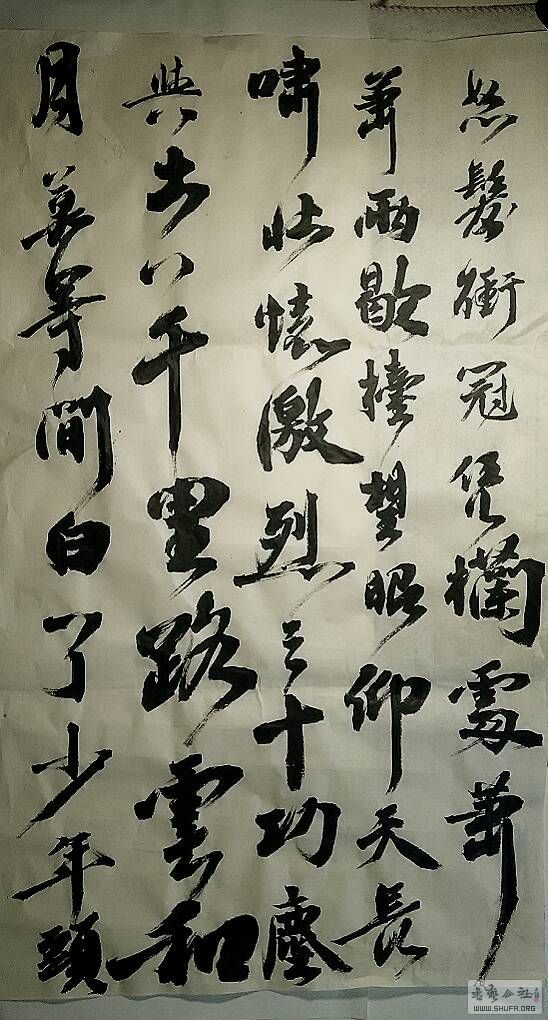 怒髮衝冠凭欄處蕭
蕭雨歇擡望眼仰天長
嘯壯懷激烈三十功塵
與土八千里路雲和
月莫等閒白了少年頭
書藝公社
WWW.SHUFA.ORG